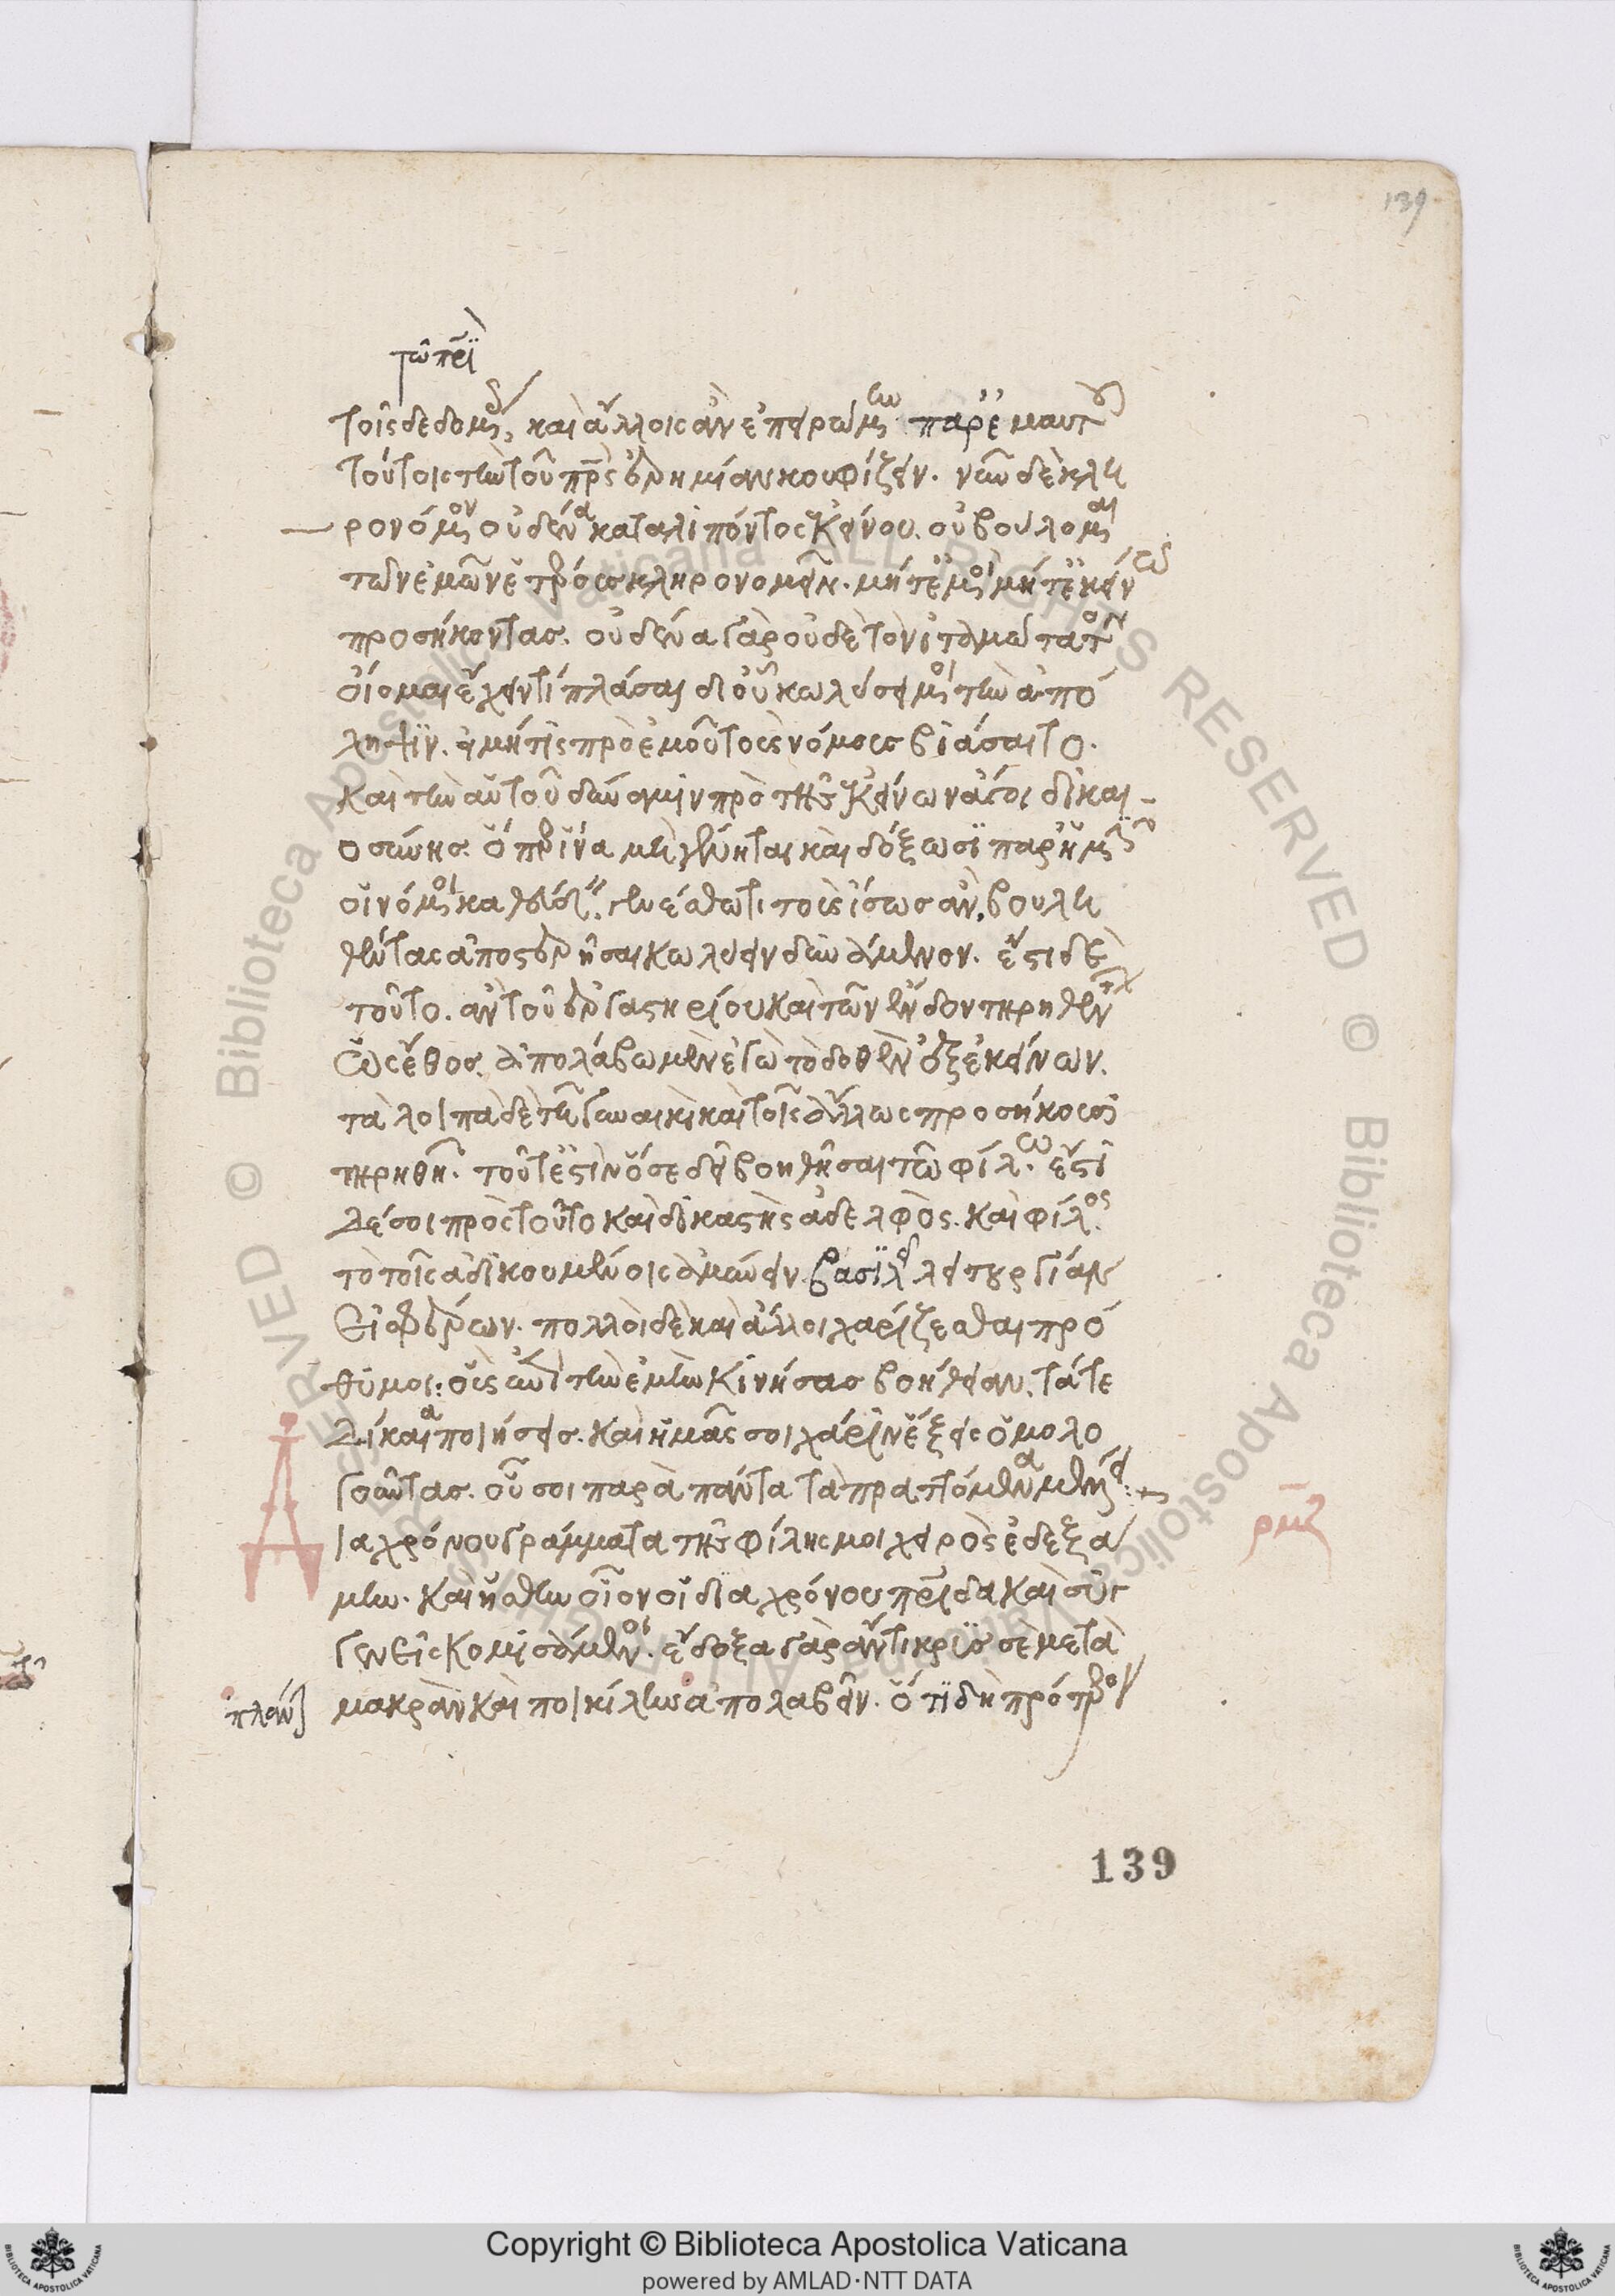 139
τοῖς δεδομένοις, καὶ ἄλλοις ἂν ἐπειρώμην παρ' ἐμαυτοῦ
τούτοις τὴν τοῦ πατρὸς ἐρημίαν κουφίζειν. νῦν δὲ κλη
ρονόμον οὐδένα καταλιπόντος ἐκείνου. οὐ βούλομαι
τῶν ἐμῶν ἑτέρους κληρονομεῖν. μήτ' ἐμοὶ μήτ' ἐκείνω
προσήκοντας. οὐδένα γὰρ οὐδὲ τὸν ἰταμώτατον
οἴομαι ἔχειν τί πλάσαι δι' οὗ κωλύσει μοι τὴν ἀπό
ληψιν. εἰ μή τις πρὸ ἐμοῦ τοὺς νόμους βιάσαιτο.
καὶ τὴν αὐτοῦ δύναμιν πρὸ τῆς ἐκείνων ἄγοι δικαι
οσύνης. ὅπερ ἵνα μὴ γένηται καὶ δόξωσι παρ' ἡμῖν
οἱ νόμοι καθεύδειν, τοὺς ἴσως ἂν βουλη
θέντας ἀποστερῆσαι κωλύειν δεῖ. ἔστι δὲ
τοῦτο. ἂν τοῦ ἐργαστηρίου καὶ τῶν ἔνδον τηρηθέντων
ὡς ἔθος. ἀπολάβω μὲν ἐγὼ τὸ δοθὲν ἐξ ἐκείνων.
τὰ λοιπὰ δὲ τῇ γυναικὶ καὶ τοῖς ἄλλως προσήκουσι
τηρηθῇ. τοῦτ' ἔστιν ὅ σε δεῖ βοηθῆσαι τῷ φίλω. ἔστι
δέ σοι πρὸς τοῦτο καὶ δικαστὴς ἀδελφὸς. καὶ φίλος
τὸ τοῖς ἀδικουμένοις ἀμύνειν βασιλεῖ λειτουργίαν
εἰσφέρων. πολλοὶ δὲ καὶ ἄλλοι χαρίζεσθαι πρό
θυμοι. οἷς τὴν ἐμὴν κινήσας βοήθειαν. τά τε
δίκαια ποιήσεις. καὶ ἡμᾶς σοι χάριν ἕξεις ὁμολο
γοῦντας. οὗ σοι παρὰ πάντα τὰ πραττόμενα μέλει
ρμζ
Δ
ιὰ χρόνου γράμματα τῆς φίλης μοι χειρὸς ἐδεξά
μην. καὶ ἥσθην οἷον οἱ διὰ χρόνου πατρίδα καὶ συγ
γενεῖς κομισάμενοι. ἔδοξα γὰρ ἄντικρυς σὲ μετὰ
πλάνην
μακρὰν καὶ ποικίλην ἀπολαβεῖν. ὅ τι δὴ πρότερον
139